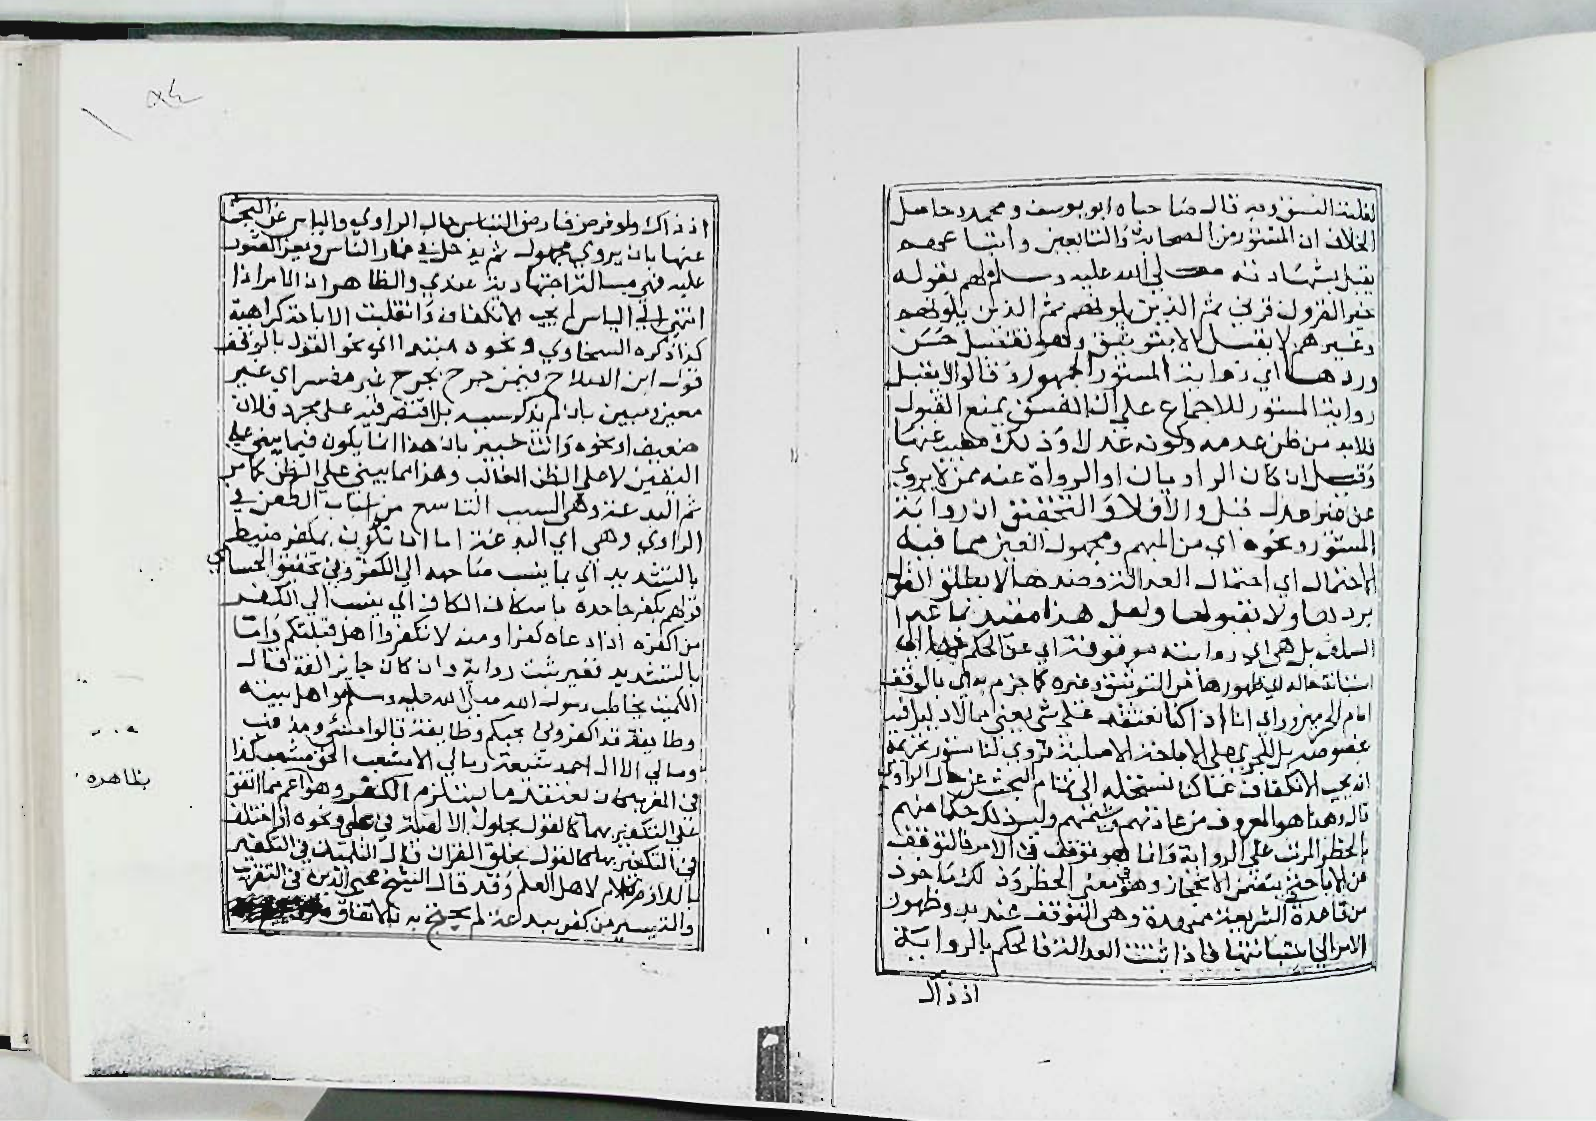 لغلبة الفسق وبه قال صاحباه ابو يوسف ومحمد وحاصل
الخلاف ان المستور من الصحابة والتابعين واتباعهم
يقبل بشهادته صلى الله عليه وسلم لهم بقوله
خير القرون قرني ثم الذين يلونهم ثم الذين يلونهم
وغيرهم لا يقبل الا بتوثيق وهو تفصيل حسن
وردها اي رواية المستور الجمهور وقالوا لا تقبل
رواية المستور للاجماع على ان الفسق يمنع القبول
فلا بد من ظن عدمه وكونه عدلا وذلك مغيب عنا
وقيل ان كان الراويان او الرواة عنه ممن لا يروي
عن غير عدل قبل والا فلا والتحقيق ان رواية
المستور ونحوه اي من المبهم ومجهول العين مما فيه
الاحتمال اي احتمال العدالة وضدها لا يطلق القول
بردها ولا بقبولها ولعل هذا مقيد بما عدا
السلف بل هي اي روايته موقوفة اي عن الحكم فيها الى
استبانة حاله اي ظهورها من التوثيق وغيره كما جزم به اي بالوقف
امام الحرمين وراي انا اذا كنا نعتقد على شي يعني مما لا دليل فيه
بخصوصه بل للجري على الاباحة الاصلية فروي لنا مستور تحريمه
انه يجب الانكفاف عما كنا نستحله الى تمام البحث عن حال الراوي
قال وهذا هو المعروف من عادتهم وشيمتهم وليس ذلك حكما منهم
بالحظر المرتب على الرواية وانما هو توقف في الامر فالتوقف
عن الاباحة يتضمن الانحجاز وهو في معنى الحظر وذلك ماخوذ
من قاعدة في الشريعة ممهدة وهي التوقف عند بدو ظهور
الامر الى استبانتها فاذا ثبتت العدالة فالحكم بالرواية
اذ ذاك
اذ ذاك ولو فرض فارض التباس حال الراوي والياس عن البحث
عنها بان يروي مجهول ثم يدخل في غمار الناس ويعز العثور
عليه فهي مسالة اجتهادية عندي والظاهر ان الامر اذا
انتهى الى الياس لم يجب الانكفاف وانقلبت الاباحة كراهة
كذا ذكره السخاوي ونحوه مبتدا اي نحو القول بالوقف
قول ابن الصلاح فيمن جرح بجرح غير مفسر اي غير
معين ومبين بان لم يذكر سببه بل اقتصر فيه على مجرد فلان
ضعيف او نحوه وانت خبير بان هذا انما يكون فيما يبنى على
اليقين لا على الظن الغالب وهذا مما يبنى على الظن كما مر
ثم البدعة وهي السبب التاسع من اسباب الطعن في
الراوي وهي اي البدعة اما ان تكون بمكفر ضبط
بالتشديد اي بما ينسب صاحبه الى الكفر وفي تحقيق الجسامي
نراهم بكفر جاحده باسكان الكاف اي ينسب الى الكفر
من اكفره اذا دعاه كفرا ومنه لا تكفروا اهل قبلتكم واما
بالتشديد فغير ثبت رواية وان كان جايز الفة قال
الكميت يخاطب رسول الله صلى الله عليه وسلم واهل بيته
وطايفة قد اكفروني بحبكم وطايفة قالوا مسيء ومذنب
وما لي الا ال احمد شيعة وما لي الا مشعب الحق مشعب كذا
في المغرب كان يعتقد ما يستلزم الكفر وهو اعم مما اتفق
على التكفير بها كالقول بحلول الالهية في علي ونحوه او اختلف
في التكفير بها كالقول بخلق القران قال التلميذ في التكفير
باللازم كلام لاهل العلم وقد قال الشيخ محيي الدين في التقريب
والتيسير من كفر ببدعة لم يحتج به بالاتفاق
بظاهره